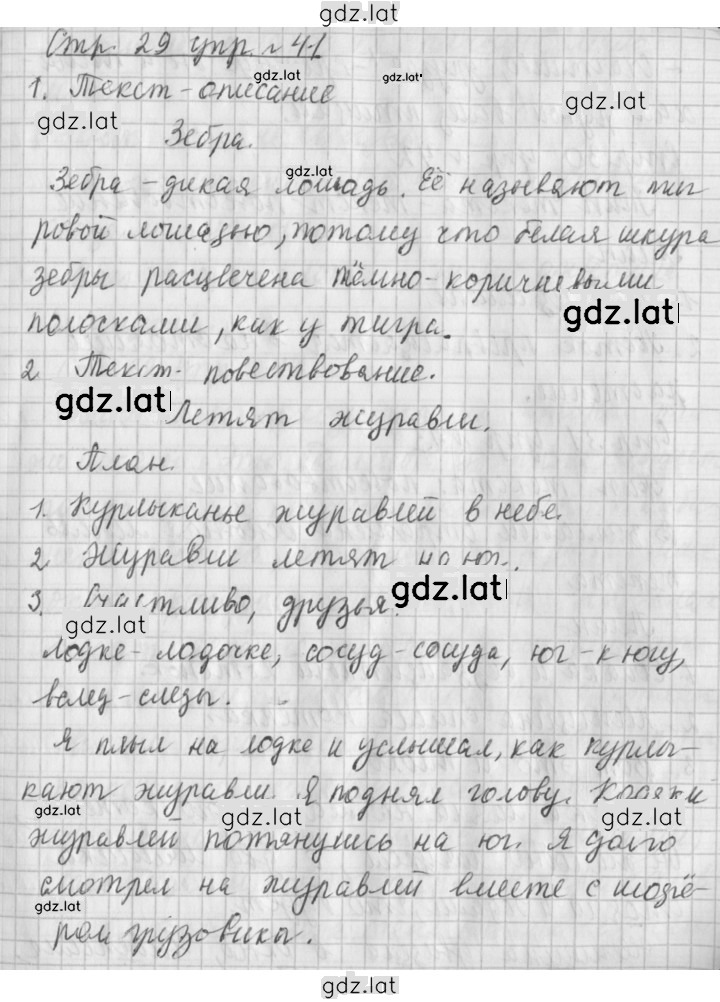 gdz.lat
Стр. 29 упр. № 41
gdz.lat
gdz.lat
1. Текст-описание
gdz.lat
gdz.lat
Зебра.
gdz.lat
Зебра - дикая лошадь. Её называют тиг
ровой лошадью, потому что белая шкура
зебры расцвечена тёмно-коричневыми
gdz.lat
полосками, как у тигра.
2 Текст- повествование.
gdz.lat
Летят журавли.
План.
1. Курлыканье журавлей в небе.
2. Журавли летят на юг.
gdz.lat
3. Счастливо, друзья.
gdz.lat
Лодке-лодочке, сосуд-сосуда, юг-к югу,
вслед-следы.
Я плыл на лодке и услышал, как курлы-
кают журавли. Я поднял голову. Косяки
gdz.lat
gdz.lat
журавлей потянулись на юг. Я долго
смотрел на журавлей вместе с шофё-
gdz.lat
gdz.lat
ром грузовики.
gdz.lat